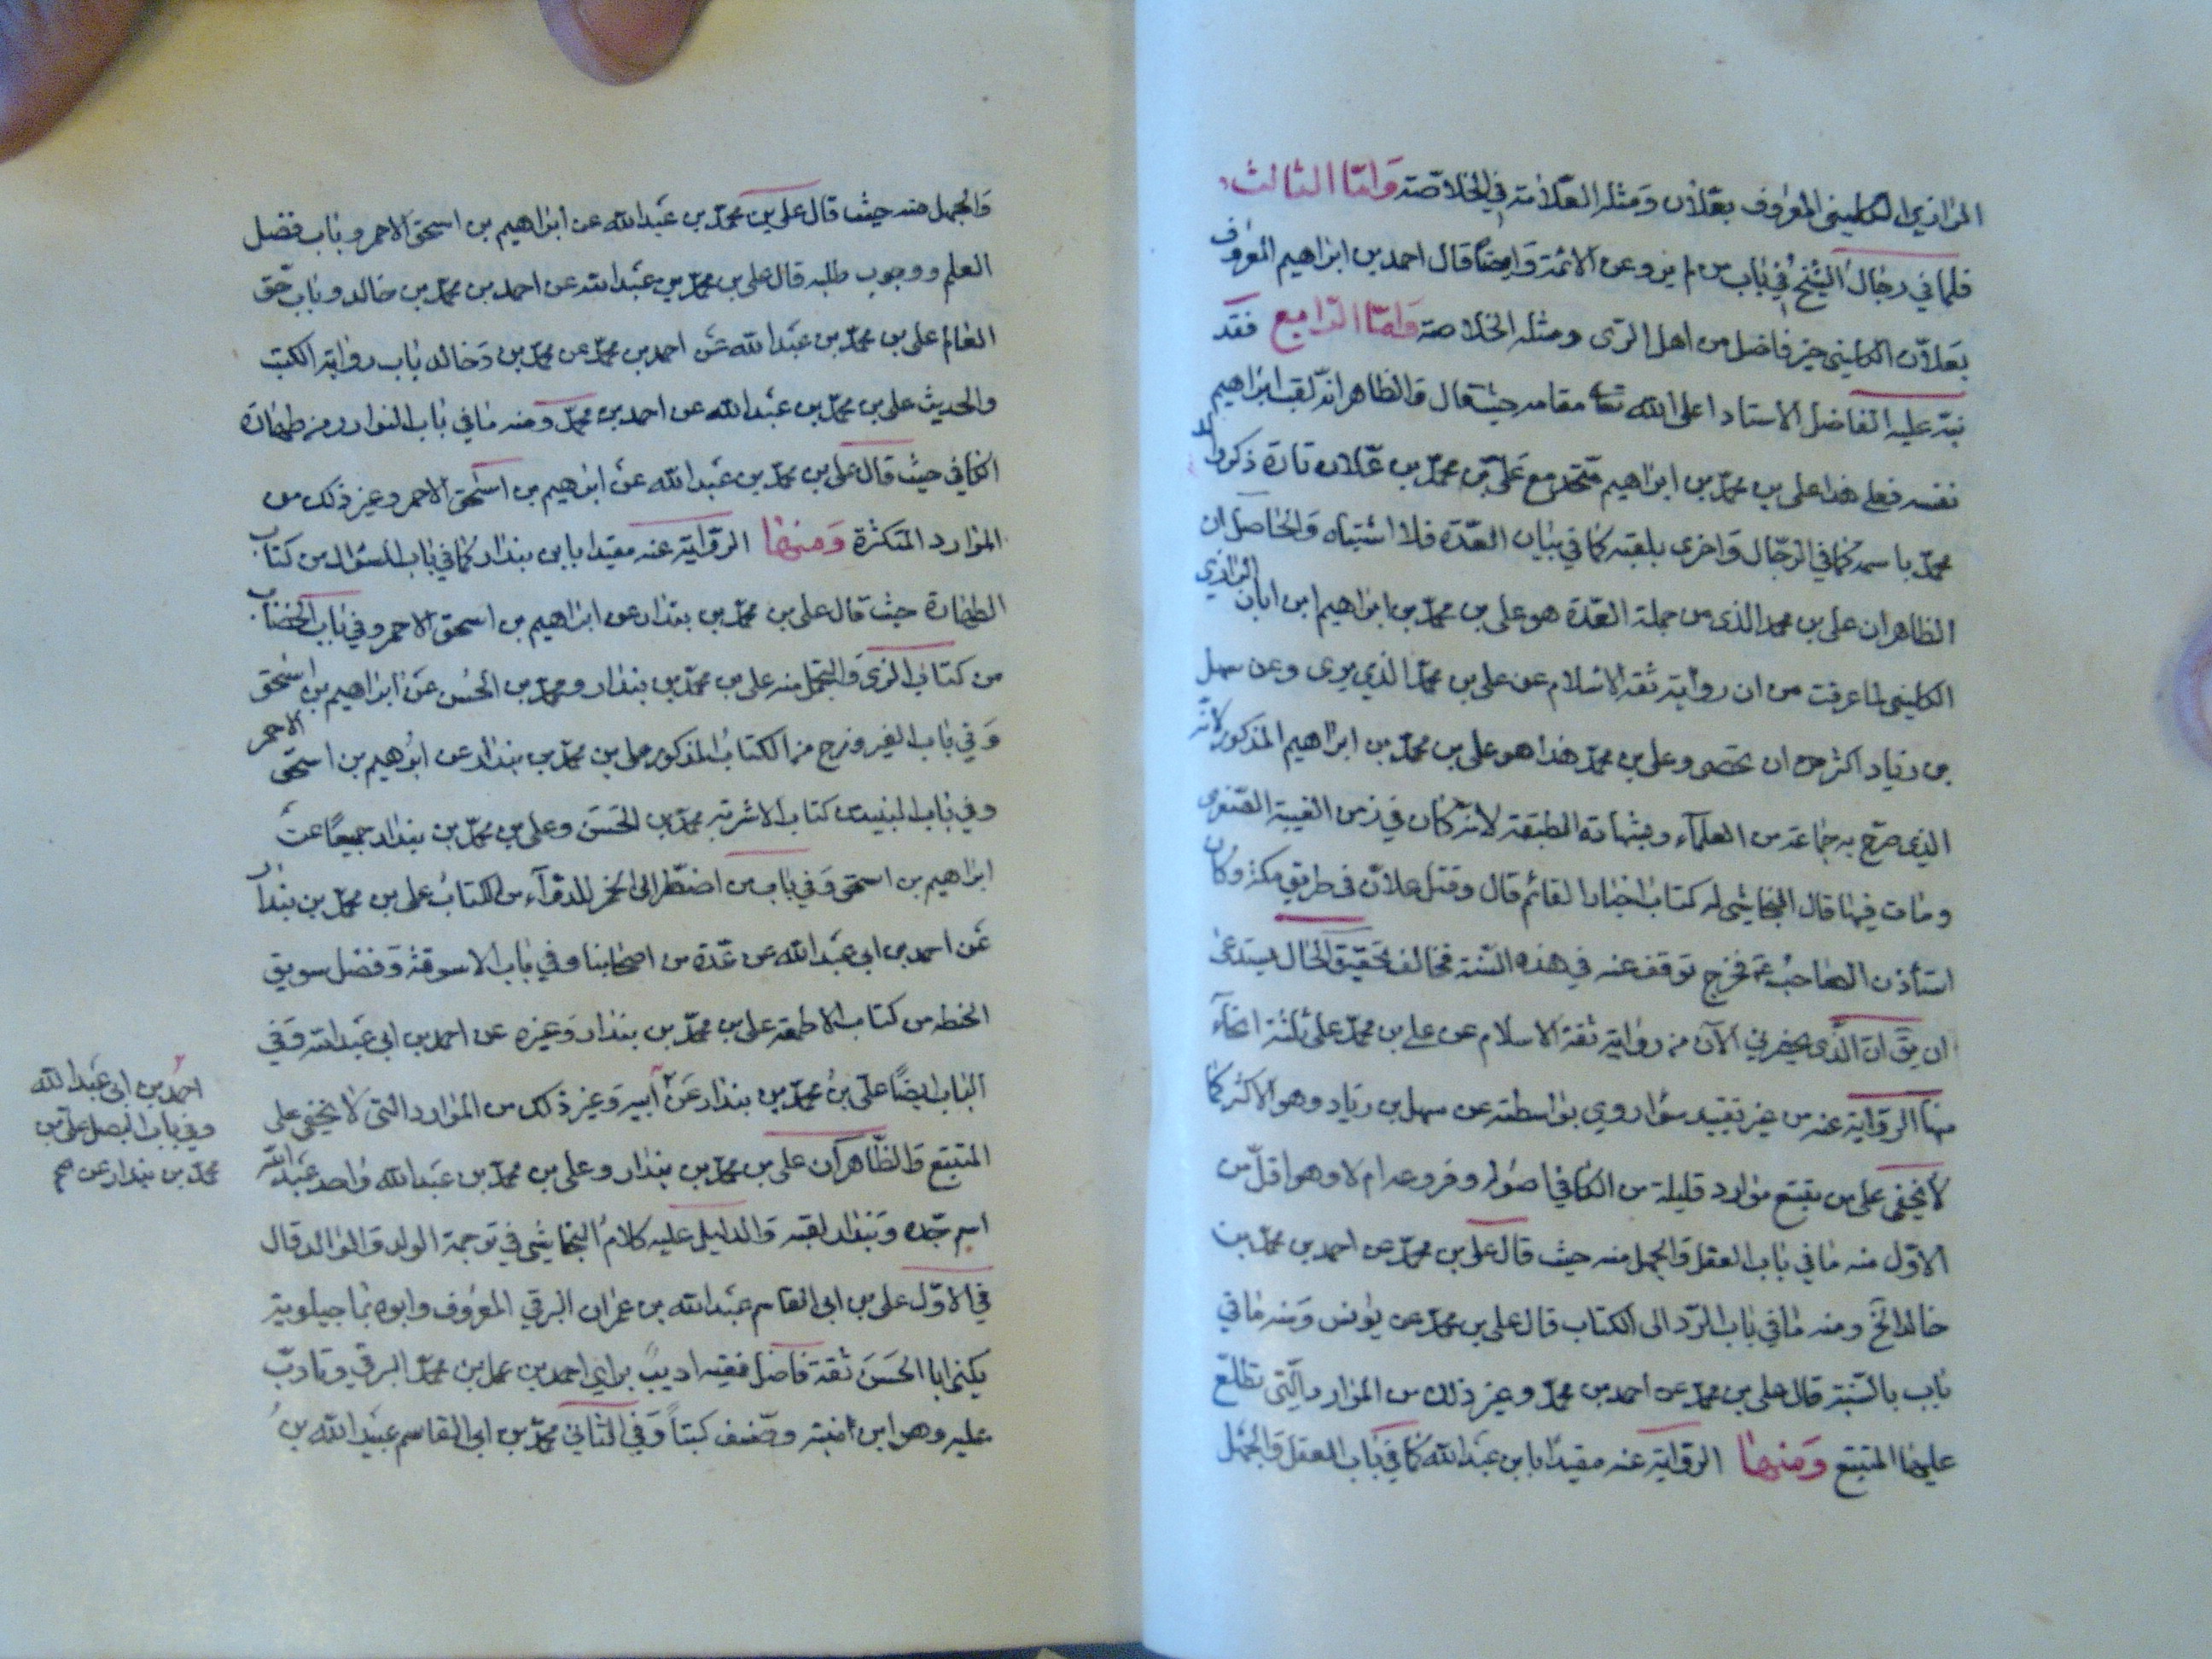 الرازي الكليني المعروف بعلان ومثله العلامة في الخلاصة واما الثالث
فلما في رجال الشيخ في باب من لم يرو عن الائمة وايضا قال احمد بن ابراهيم المعروف
بعلان الكليني خير فاضل من اهل الري ومثله الخلاصة واما الرابع فقد
نبه عليه الفاضل الاستاد اعلى الله تعالى مقامه حيث قال والظاهر انه لقب ابراهيم
نفسه فعلى هذا علي بن محمد بن ابراهيم متحد مع علي بن محمد بن علان تارة ذكر والد
محمد باسمه كما في الرجال واخرى بلقبه كما في بيان العدة فلا اشتباه والحاصل ان
الظاهر ان علي بن محمد الذي من جملة العدة هو علي بن محمد بن ابراهيم ابن ابان الرازي
الكليني لما عرفت من ان رواية ثقة الاسلام عن علي بن محمد الذي يروي وعن سهل
بن زياد اكثر من ان تحصى وعلي بن محمد هذا هو علي بن محمد بن ابراهيم المذكور لانه
الذي صرح به جماعة من العلماء وبشهادة الطبقة لانه كان في زمن الغيبة الصغرى
ومات فيها قال النجاشي له كتاب اخبار القائم قال وقتل علان في طريق مكة وكان
استأذن الصاحب عم فخرج توقف عنه في هذه السنة فخالف تحقيق الحال يستدعى
ان يق ان الذي يحضرني الآن من رواية ثقة الاسلام عن علي بن محمد على ثلثة انحاء
منها الرواية عنه من غير تقييد سواء روي بواسطته عن سهل بن زياد وهو الاكثر كما
لا يخفى على من يتتبع موارد قليلة من الكافي اصوله وفروعه ام لا وهو اقل من
الاول منه ما في باب العقل والجهل منه حيث قال علي بن محمد عن احمد بن محمد بن
خالد الخ ومنه ما في باب الرد الى الكتاب قال علي بن محمد عن يونس ومنه ما في
باب بالسنة قال علي بن محمد عن احمد بن محمد وغير ذلك من الموارد التي تطلع
عليها المتتبع ومنها الرواية عنه مقيدا بابن عبد الله كما في باب العقل والجهل
والجهل منه حيث قال علي بن محمد بن عبد الله عن ابراهيم بن اسحق الاحمر وباب فضل
العلم ووجوب طلبه قال علي بن محمد بن عبد الله عن احمد بن محمد بن خالد وباب حق
العالم علي بن محمد بن عبد الله عن احمد بن محمد عن محمد بن وخالد باب رواية الكتب
والحديث علي بن محمد بن عبد الله عن احمد بن محمد ومنه ما في باب النوادر من طهارة
الكافي حيث قال علي بن محمد بن عبد الله عن ابرهيم بن اسحق الاحمر وغير ذلك من
الموارد المتكثرة ومنها الرواية عنه مقيدا بابن بندار كما في باب السؤال من كتاب
الطهارة حيث قال علي بن محمد بن بندار عن ابراهيم بن اسحق الاحمر وفي باب الخضاب
من كتاب الزي والتجمل منه علي بن محمد بن بندار ومحمد بن الحسن عن ابراهيم بن اسحق
وفي باب الفيروزج من الكتاب المذكور علي بن محمد بن بندار عن ابرهيم بن اسحق الاحمر
وفي باب النبيذ من كتاب الاشربة محمد بن الحسن وعلي بن محمد بن بندار جميعا عن
ابراهيم بن اسحق وفي باب من اضطر الى الخمر للدواء من الكتاب علي بن محمد بن بندار
عن احمد بن ابي عبد الله عن عدة من اصحابنا وفي باب الاسوقة وفضل سويق
الحنطه من كتاب الاطعمة علي بن محمد بن بندار وغيره عن احمد بن ابي عبد الله وفي
الباب ايضا علي بن محمد بن بندار عن ابيه وغير ذلك من الموارد التي لا يخفى على
المتتبع والظاهر ان علي بن محمد بن بندار وعلي بن محمد بن عبد الله واحد عبد الله
اسم جده وبندار لقبه والدليل عليه كلام النجاشي في ترجمة الولد والوالد قال
في الاول علي بن ابي القاسم عبد الله بن عمران البرقي المعروف وابوه بماجيلويه
يكنى ابا الحسن ثقة فاضل فقيه اديب براي احمد بن محمد البرقي وتادب
عليه وهو ابن ابنته وصنف كتبا وفي الثاني محمد بن ابي القاسم عبيد الله بن
احمد بن ابي عبد الله
وفي باب البصل علي بن
محمد بن بندار عن